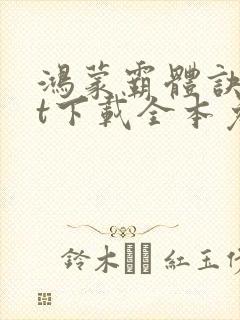 鴻蒙霸體訣
t下載全本
鈴木 紅玉